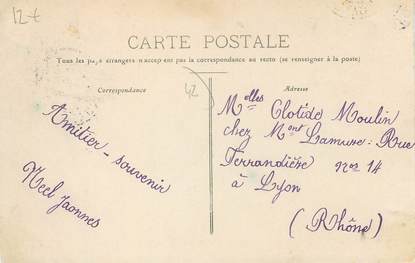 12 €
CARTE POSTALE
Tous les pays étrangers n'acceptent pas la correspondance au recto (se renseigner à la poste)
Correspondance
42
Adresse
Amitier - souvenir
Neel Jaonnes
Melles Clotide Moulin
chez Mont Lamure: Rue
Ferrandière nos 14
à Lyon
(Rhône)